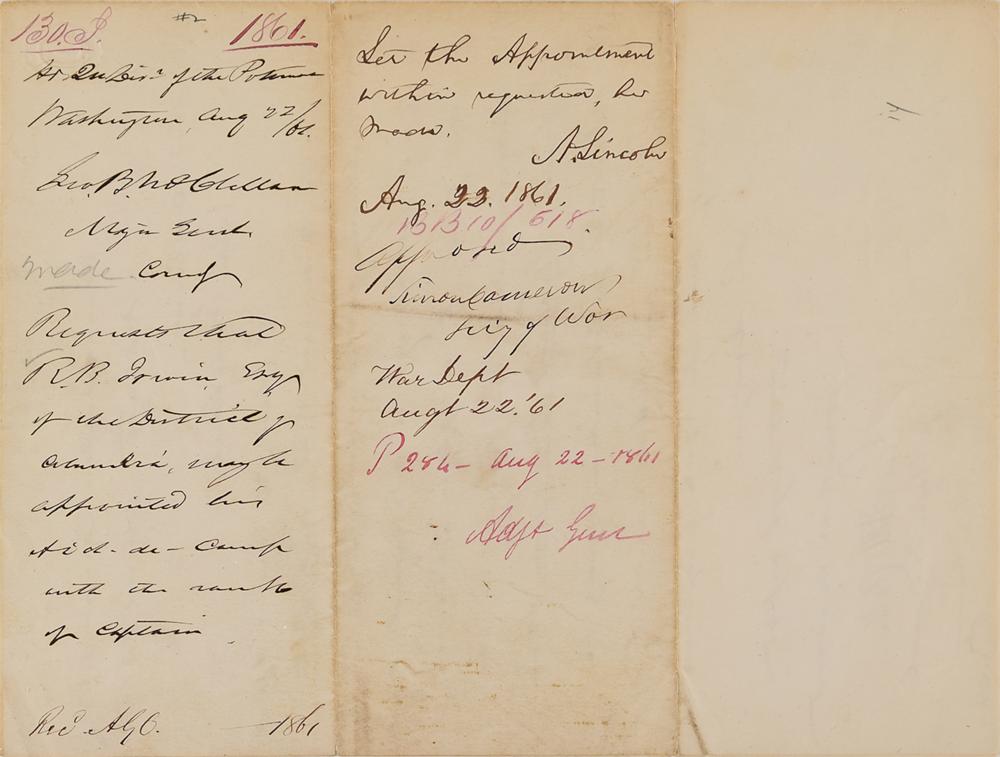 130. I. 1861.
Hd Qu Div. of the Potomac
Washington, Aug 22/61.
Geo. B. McClellan
Major Genl.
made Comdg
Requests that
R.B. Irwin, Esq
of the District of
Columbia, may be
appointed his
Aid-de-Camp
with the rank
of Captain
Rec'd A.G.O. 1861
Let the Appointment
within requested, be
made.
A. Lincoln
Aug. 22. 1861.
Approved
Simon Cameron
Secy of War
War Dept
Augt 22. '61
P 284 - Aug 22 - 1861
Adjt Genl